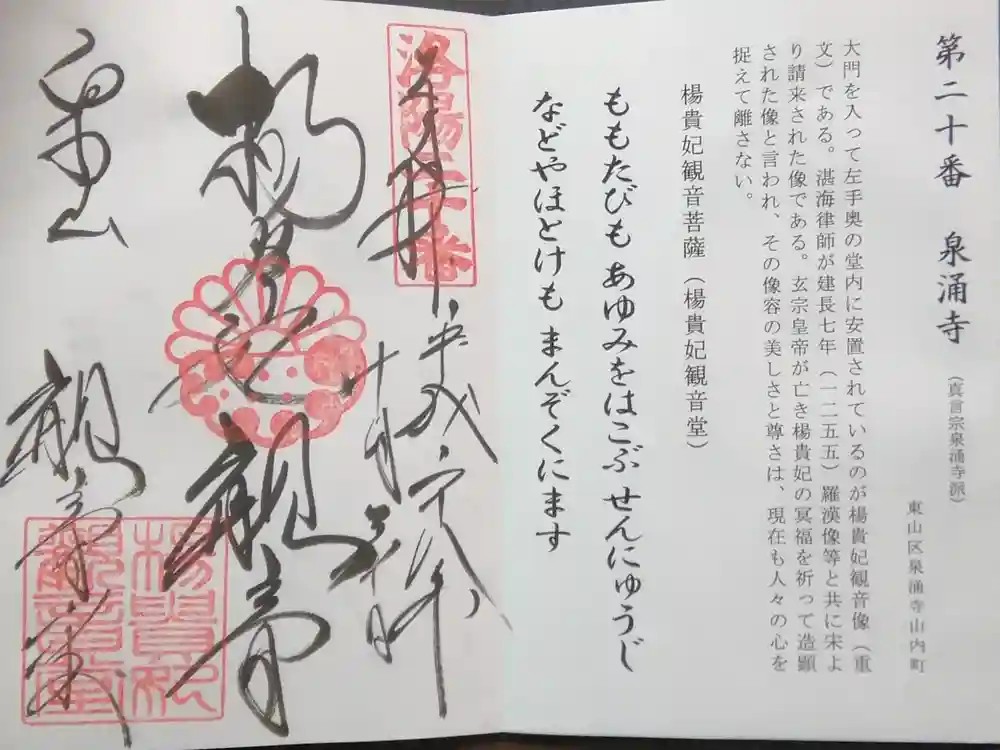 第二十番 泉涌寺(真言宗泉涌寺派)
東山区泉涌寺山内町
大門を入って左手奥の堂内に安置されているのが楊貴妃観音像(重
文)である。湛海律師が建長七年(一二五五)羅漢像等と共に宋よ
り請来された像である。玄宗皇帝が亡き楊貴妃の冥福を祈って造顕
された像と言われ、その像容の美しさと尊さは、現在も人々の心を
捉えて離さない。
楊貴妃観音菩薩(楊貴妃観音堂)
ももたびも あゆみをはこぶ せんにゅうじ
などやほとけも まんぞくにます
洛陽二十番
奉拝
楊貴妃観音
泉山
観音堂
楊貴妃
観音堂